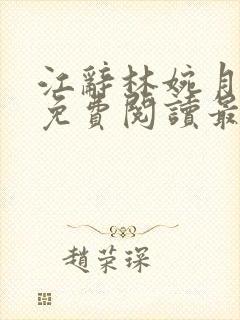 江辭林婉月
免費閱讀最
趙荣琛